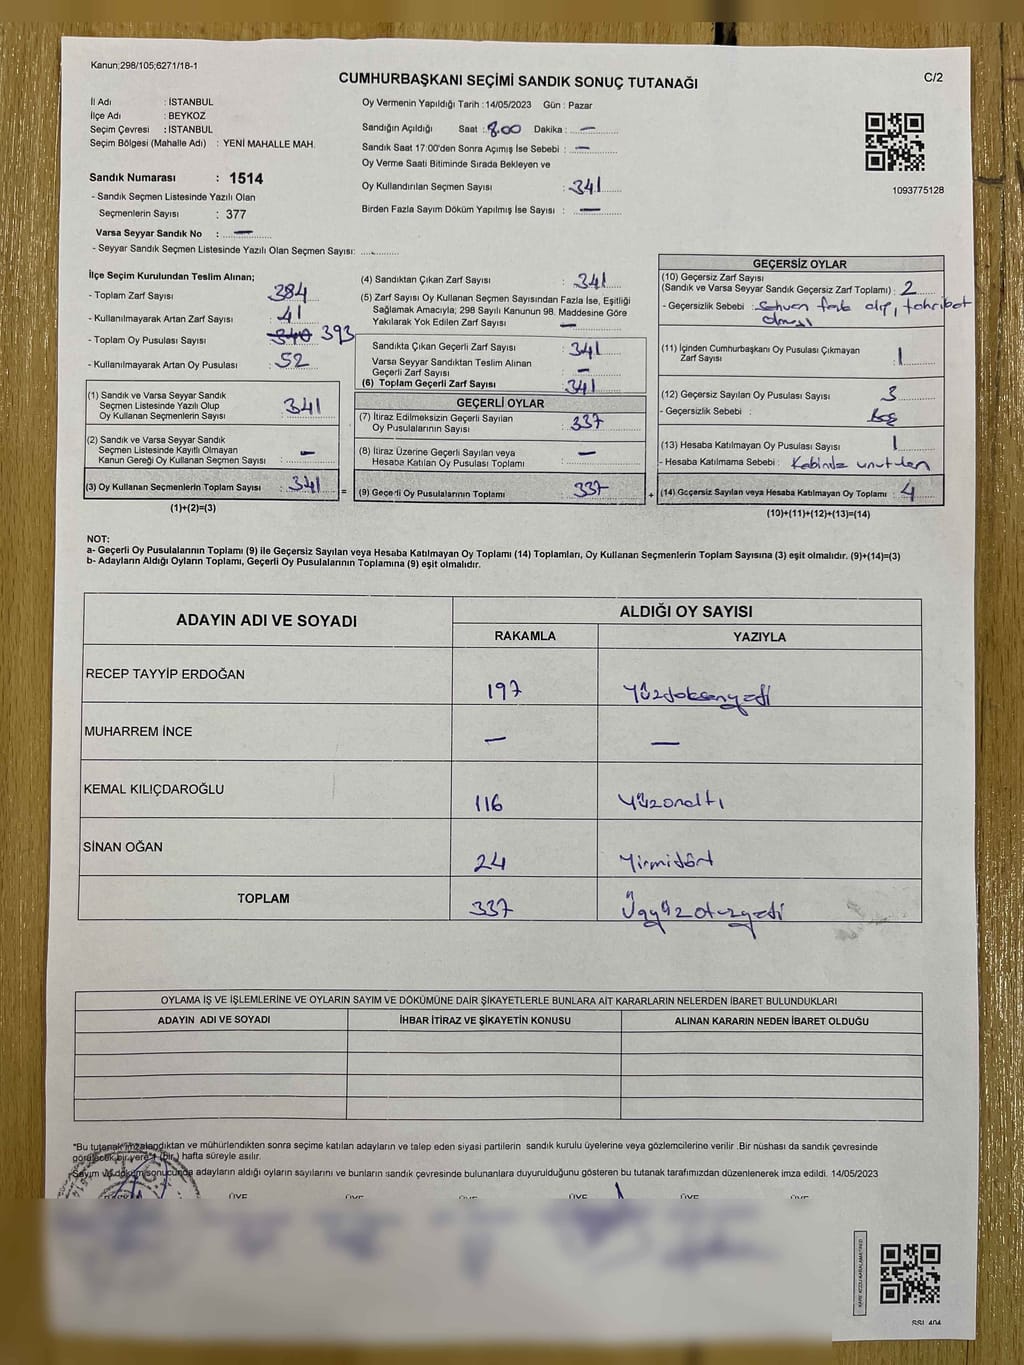 Kanun;298/105;6271/18-1
C/2
CUMHURBAŞKANI SEÇİMİ SANDIK SONUÇ TUTANAĞI
İl Adı : İSTANBUL
İlçe Adı : BEYKOZ
Seçim Çevresi : İSTANBUL
Seçim Bölgesi (Mahalle Adı) : YENİ MAHALLE MAH.
Sandık Numarası : 1514
- Sandık Seçmen Listesinde Yazılı Olan
Seçmenlerin Sayısı : 377
Varsa Seyyar Sandık No : —
- Seyyar Sandık Seçmen Listesinde Yazılı Olan Seçmen Sayısı:
Oy Vermenin Yapıldığı Tarih :14/05/2023 Gün : Pazar
Sandığın Açıldığı Saat : 8.00 Dakika : —
Sandık Saat 17:00'den Sonra Açımış İse Sebebi : —
Oy Verme Saati Bitiminde Sırada Bekleyen ve
Oy Kullandırılan Seçmen Sayısı : 341
Birden Fazla Sayım Döküm Yapılmış İse Sayısı : —
1093775128
İlçe Seçim Kurulundan Teslim Alınan;
- Toplam Zarf Sayısı 384
- Kullanılmayarak Artan Zarf Sayısı 41
- Toplam Oy Pusulası Sayısı 340 393
- Kullanılmayarak Artan Oy Pusulası 52
(1) Sandık ve Varsa Seyyar Sandık
Seçmen Listesinde Yazılı Olup
Oy Kullanan Seçmenlerin Sayısı 341
(2) Sandık ve Varsa Seyyar Sandık
Seçmen Listesinde Kayıtlı Olmayan
Kanun Gereği Oy Kullanan Seçmen Sayısı : —
(3) Oy Kullanan Seçmenlerin Toplam Sayısı 341 =
(1)+(2)=(3)
(4) Sandıktan Çıkan Zarf Sayısı : 341
(5) Zarf Sayısı Oy Kullanan Seçmen Sayısından Fazla İse, Eşitliği
Sağlamak Amacıyla; 298 Sayılı Kanunun 98. Maddesine Göre
Yakılarak Yok Edilen Zarf Sayısı : —
Sandıkta Çıkan Geçerli Zarf Sayısı : 341
Varsa Seyyar Sandıktan Teslim Alınan
Geçerli Zarf Sayısı : —
(6) Toplam Geçerli Zarf Sayısı 341
GEÇERLİ OYLAR
(7) İtiraz Edilmeksizin Geçerli Sayılan
Oy Pusulalarının Sayısı : 337
(8) İtiraz Üzerine Geçerli Sayılan veya
Hesaba Katılan Oy Pusulası Toplamı : —
(9) Geçerli Oy Pusulalarının Toplamı : 337 +
GEÇERSİZ OYLAR
(10) Geçersiz Zarf Sayısı
(Sandık ve Varsa Seyyar Sandık Geçersiz Zarf Toplamı) : 2
- Geçersizlik Sebebi : Sehven fazla alıp, tahribat
olması
(11) İçinden Cumhurbaşkanı Oy Pusulası Çıkmayan
Zarf Sayısı : 1
(12) Geçersiz Sayılan Oy Pusulası Sayısı 3
- Geçersizlik Sebebi : Boş
(13) Hesaba Katılmayan Oy Pusulası Sayısı 1
- Hesaba Katılmama Sebebi : Kabinde unutulan
(14) Geçersiz Sayılan veya Hesaba Katılmayan Oy Toplamı : 4
(10)+(11)+(12)+(13)=(14)
NOT:
a- Geçerli Oy Pusulalarının Toplamı (9) ile Geçersiz Sayılan veya Hesaba Katılmayan Oy Toplamı (14) Toplamları, Oy Kullanan Seçmenlerin Toplam Sayısına (3) eşit olmalıdır. (9)+(14)=(3)
b- Adayların Aldığı Oyların Toplamı, Geçerli Oy Pusulalarının Toplamına (9) eşit olmalıdır.
ADAYIN ADI VE SOYADI
ALDIĞI OY SAYISI
RAKAMLA YAZIYLA
RECEP TAYYİP ERDOĞAN 197 Yüzdoksanyedi
MUHARREM İNCE — —
KEMAL KILIÇDAROĞLU 116 Yüzonaltı
SİNAN OĞAN 24 Yirmidört
TOPLAM 337 Üçyüzotuzyedi
OYLAMA İŞ VE İŞLEMLERİNE VE OYLARIN SAYIM VE DÖKÜMÜNE DAİR ŞİKAYETLERLE BUNLARA AİT KARARLARIN NELERDEN İBARET BULUNDUKLARI
ADAYIN ADI VE SOYADI İHBAR İTİRAZ VE ŞİKAYETİN KONUSU ALINAN KARARIN NEDEN İBARET OLDUĞU
*Bu tutanak imzalandıktan ve mühürlendikten sonra seçime katılan adayların ve talep eden siyasi partilerin sandık kurulu üyelerine veya gözlemcilerine verilir .Bir nüshası da sandık çevresinde
görülecek bir yere 1 (bir) hafta süreyle asılır.
Sayım ve döküm sonucunda adayların aldığı oyların sayılarını ve bunların sandık çevresinde bulunanlara duyurulduğunu gösteren bu tutanak tarafımızdan düzenlenerek imza edildi. 14/05/2023
ÜYE ÜYE ÜYE ÜYE ÜYE ÜYE